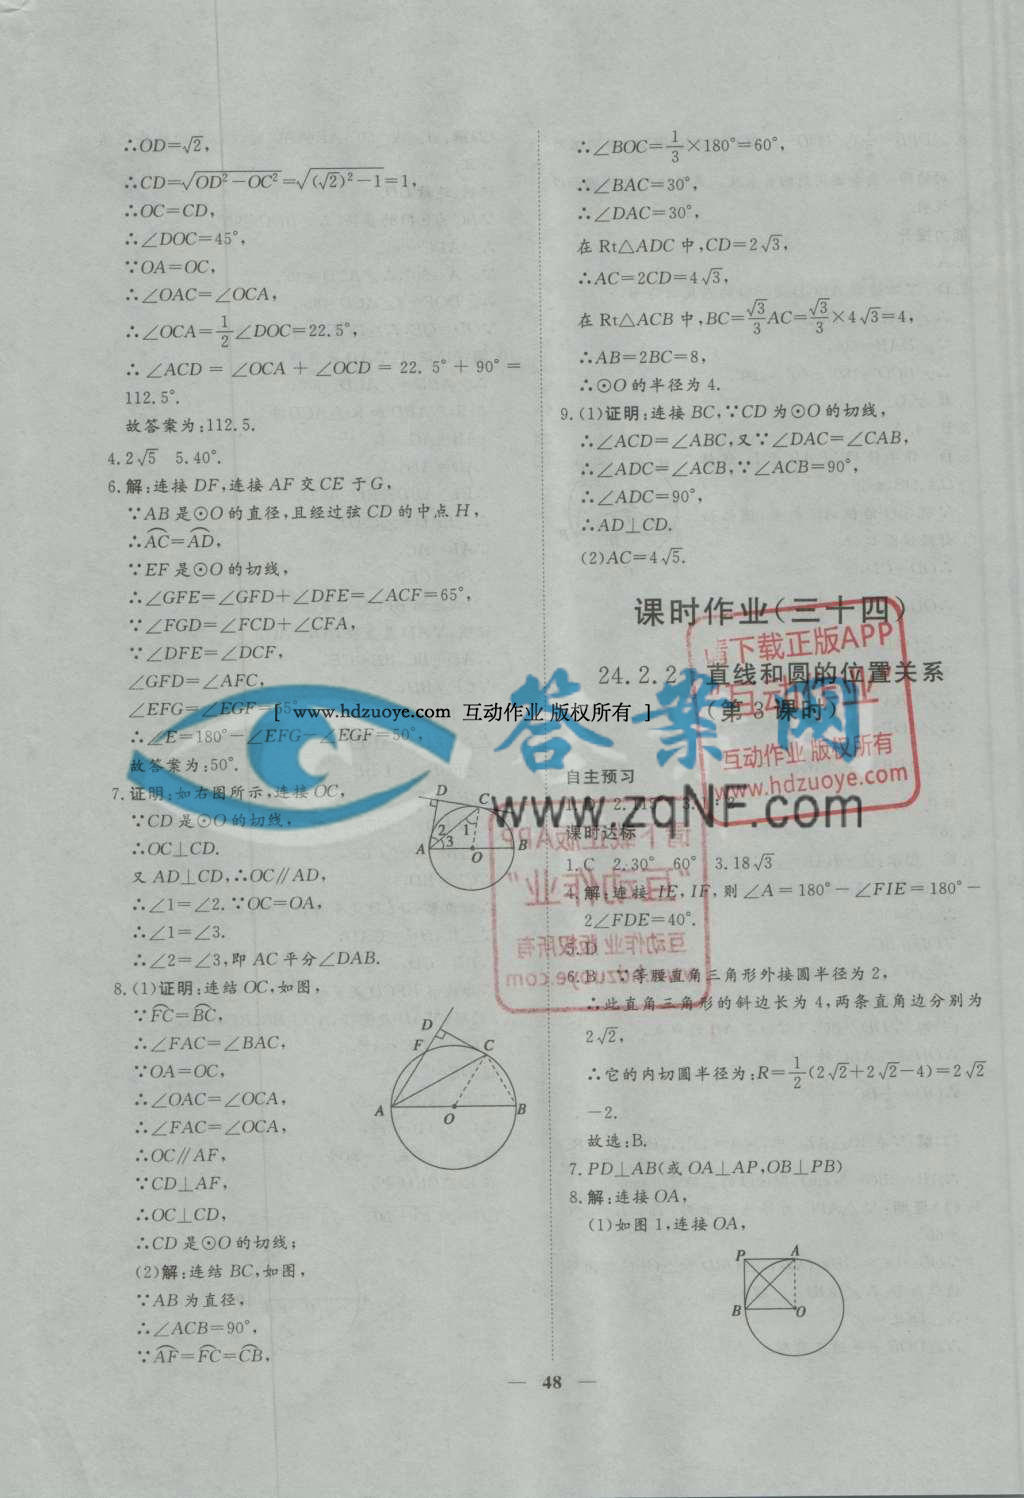 ∴OD=√2,
∴CD=√(OD²-OC²)=√((√2)²-1)=1,
∴OC=CD,
∴∠DOC=45°,
∵OA=OC,
∴∠OAC=∠OCA,
∴∠OCA=1/2∠DOC=22.5°,
∴∠ACD=∠OCA+∠OCD=22.5°+90°=
112.5°.
故答案为:112.5.
4.2√5 5.40°.
6.解:连接DF,连接AF交CE于G,
∵AB是⊙O的直径,且经过弦CD的中点H,
∴AC=AD,
∵EF是⊙O的切线,
∴∠GFE=∠GFD+∠DFE=∠ACF=65°,
∵∠FGD=∠FCD+∠CFA,
∵∠DFE=∠DCF,
∠GFD=∠AFC,
∠EFG=∠EGF=65°,
∴∠E=180°-∠EFG-∠EGF=50°,
故答案为:50°.
7.证明:如右图所示,连接OC,
∵CD是⊙O的切线,
∴OC⊥CD.
又AD⊥CD,∴OC∥AD,
∴∠1=∠2.∵OC=OA,
∴∠1=∠3.
∴∠2=∠3,即AC平分∠DAB.
D C 2 1 3 A O B
8.(1)证明:连结OC,如图,
∵FC=BC,
∴∠FAC=∠BAC,
∵OA=OC,
∴∠OAC=∠OCA,
∴∠FAC=∠OCA,
∴OC∥AF,
∵CD⊥AF,
∴OC⊥CD,
∴CD是⊙O的切线;
D F C A O B
(2)解:连结BC,如图,
∵AB为直径,
∴∠ACB=90°,
∵AF=FC=CB,
∴∠BOC=1/3×180°=60°,
∴∠BAC=30°,
∴∠DAC=30°,
在Rt△ADC中,CD=2√3,
∴AC=2CD=4√3,
在Rt△ACB中,BC=√3/3AC=√3/3×4√3=4,
∴AB=2BC=8,
∴⊙O的半径为4.
9.(1)证明:连接BC,∵CD为⊙O的切线,
∴∠ACD=∠ABC,又∵∠DAC=∠CAB,
∴∠ADC=∠ACB,∵∠ACB=90°,
∴∠ADC=90°,
∴AD⊥CD.
(2)AC=4√5.
课时作业(三十四)
24.2.2 直线和圆的位置关系
(第3课时)
自主预习
课时达标
1.C 2.30° 60° 3.18√3
4.解:连接IE,IF,则∠A=180°-∠FIE=180°-
2∠FDE=40°.
5.D
6.B ∵等腰直角三角形外接圆半径为2,
∴此直角三角形的斜边长为4,两条直角边分别为
2√2,
∴它的内切圆半径为:R=1/2(2√2+2√2-4)=2√2
-2.
故选:B.
7.PD⊥AB(或OA⊥AP,OB⊥PB)
8.解:连接OA,
(1)如图1,连接OA,
P A B O
— 48 —
[ www.hdzuoye.com 互动作业 版权所有 ]
答案网
www.zqNF.com
请下载正版APP
"互动作业"
互动作业 版权所有
www.hdzuoye.com
请下载正版APP
"互动作业"
互动作业 版权所有
www.hdzuoye.com